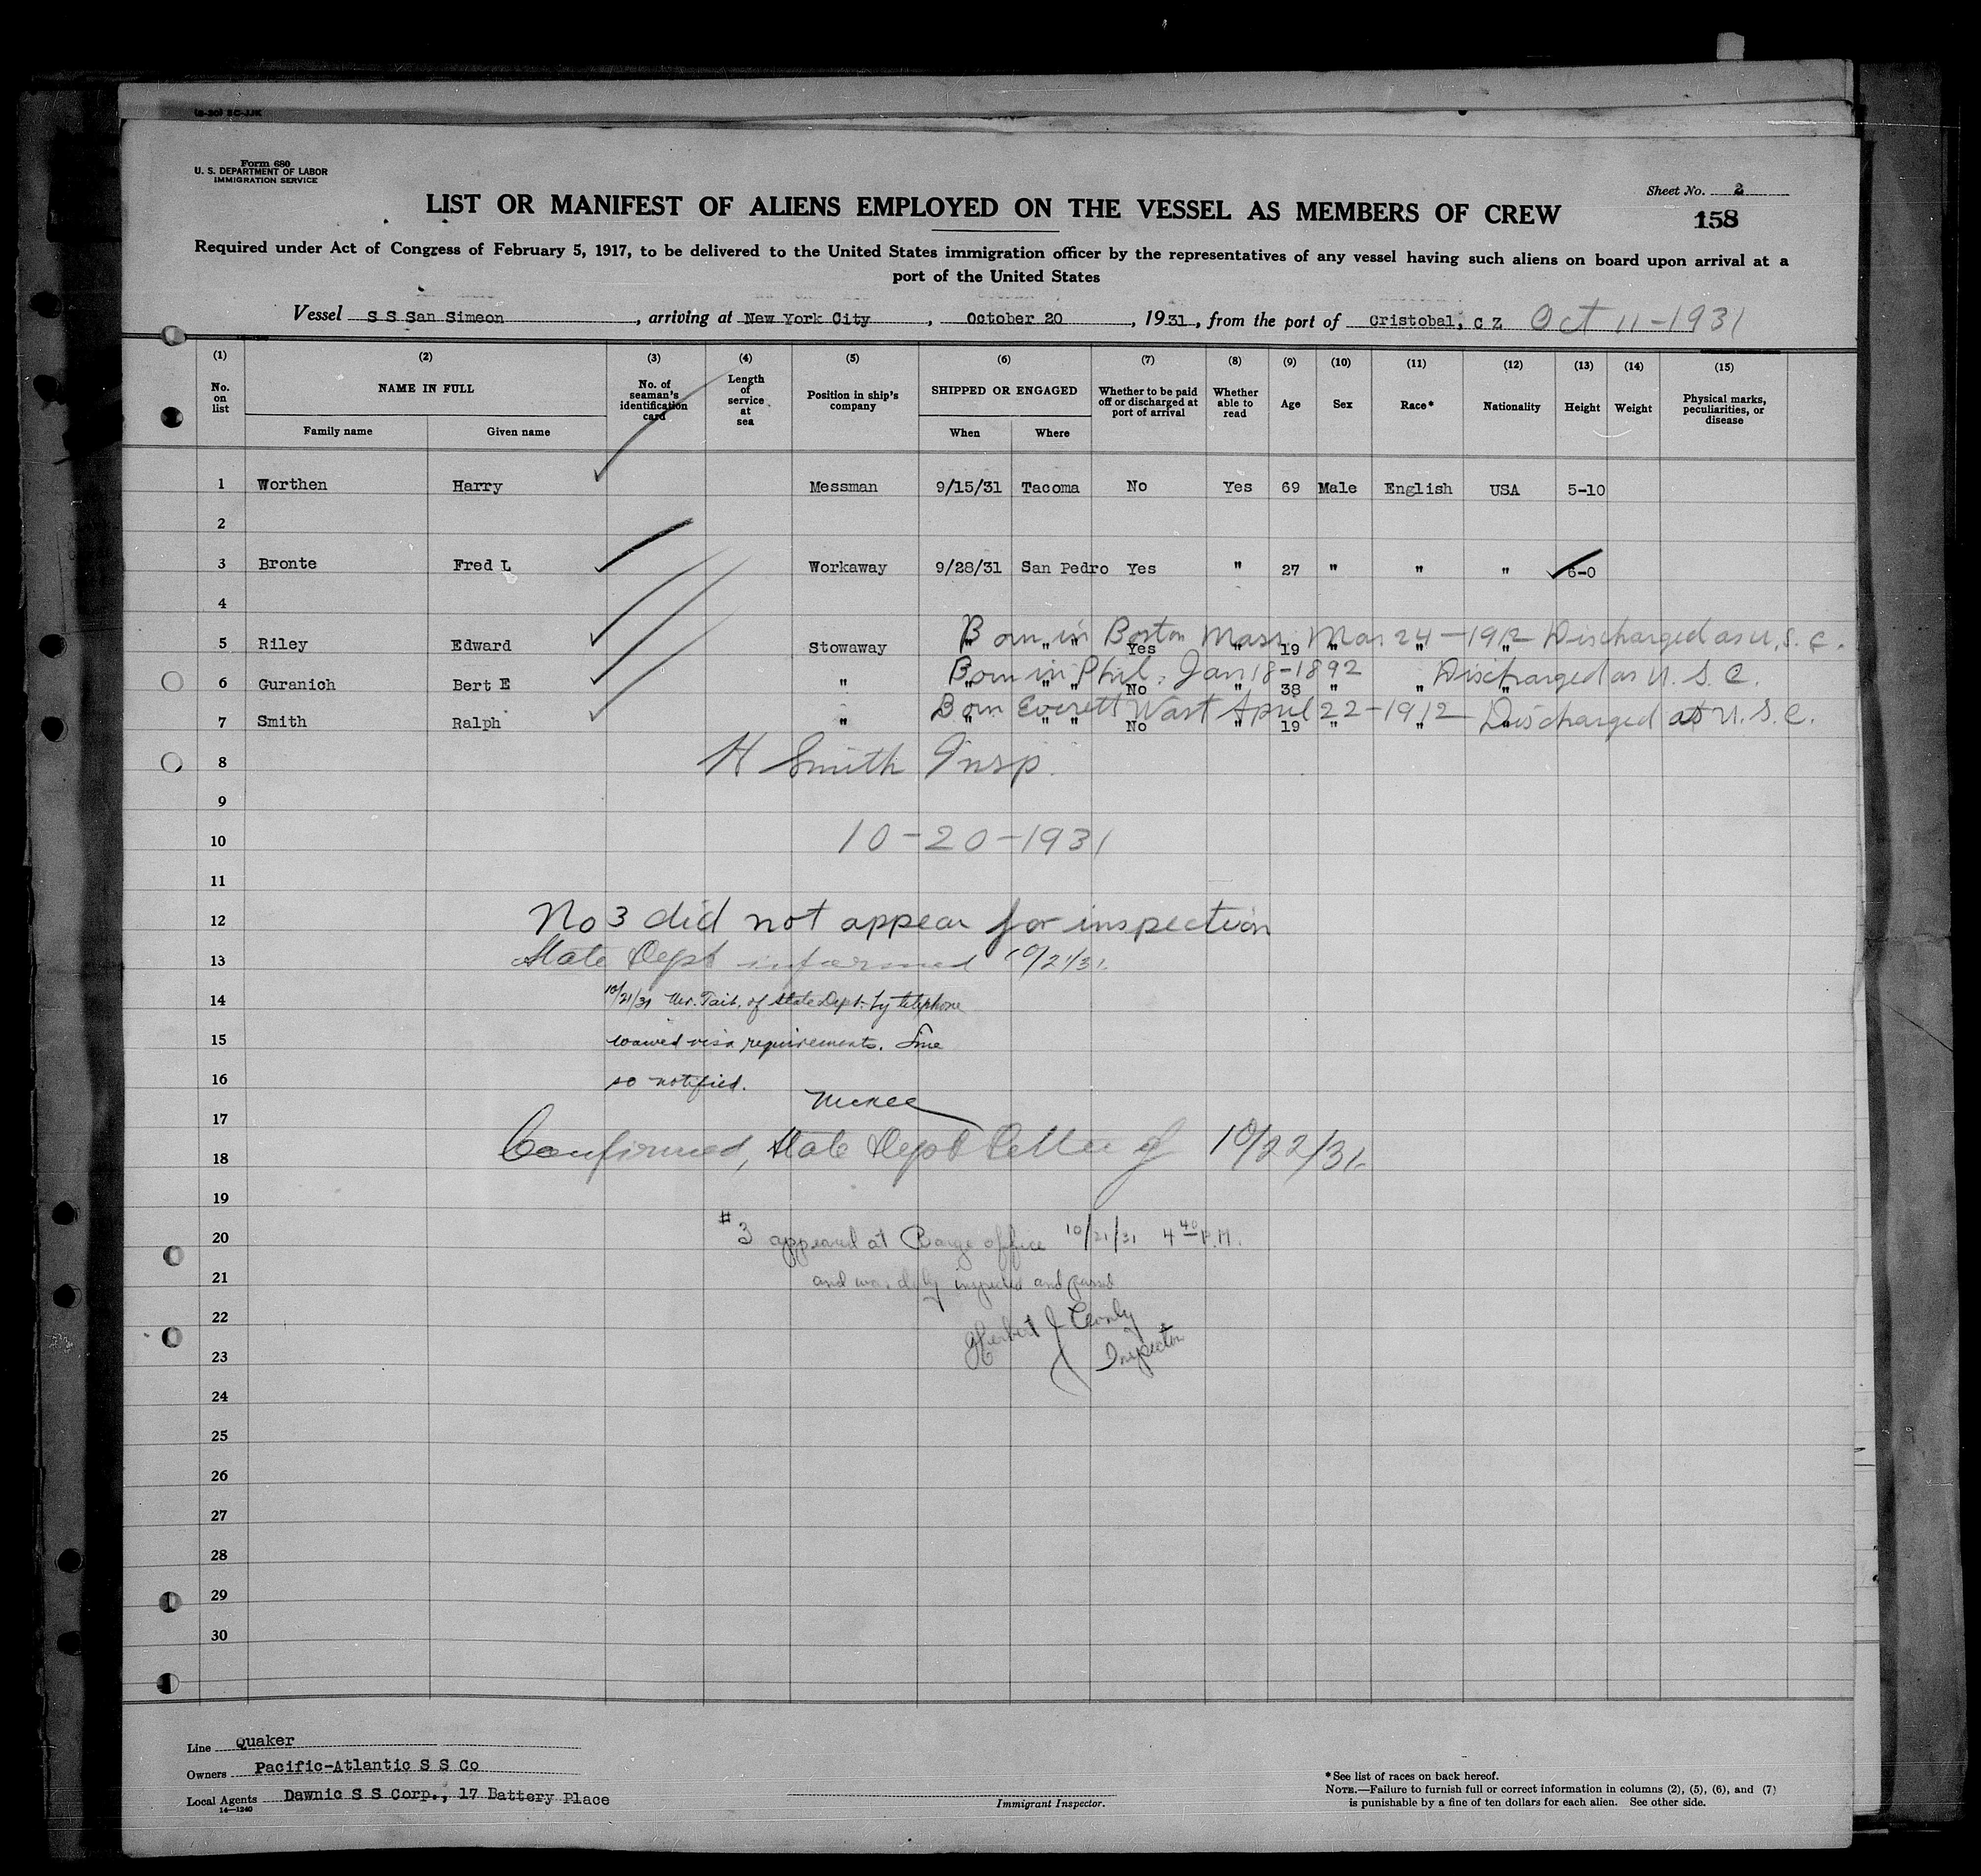 (8-30) SC-JJK
Form 680
U. S. DEPARTMENT OF LABOR
IMMIGRATION SERVICE
Sheet No. 2
158
LIST OR MANIFEST OF ALIENS EMPLOYED ON THE VESSEL AS MEMBERS OF CREW
Required under Act of Congress of February 5, 1917, to be delivered to the United States immigration officer by the representatives of any vessel having such aliens on board upon arrival at a
port of the United States
Vessel S S San Simeon, arriving at New York City, October 20, 1931, from the port of Cristobal, C Z Oct 11-1931
(1) (2) (3) (4) (5) (6) (7) (8) (9) (10) (11) (12) (13) (14) (15)
No. on list NAME IN FULL No. of seaman's identification card Length of service at sea Position in ship's company SHIPPED OR ENGAGED Whether to be paid off or discharged at port of arrival Whether able to read Age Sex Race* Nationality Height Weight Physical marks, peculiarities, or disease
Family name Given name When Where
1 Worthen Harry Messman 9/15/31 Tacoma No Yes 69 Male English USA 5-10
2
3 Bronte Fred L Workaway 9/28/31 San Pedro Yes " 27 " " " 6-0
4
Born in Boston Mass, Mar 24-1912 Discharged as U.S.C.
5 Riley Edward Stowaway " " " Yes " 19 " " "
Born in Phil. Jan 18-1892 Discharged as U.S.C.
6 Guranich Bert E " " " " No " 38 " " "
Born Everett Wast April 22-1912 Discharged as U.S.C.
7 Smith Ralph " " " " No " 19 " " "
8 H Smith Insp.
9
10 10-20-1931
11
12 No 3 did not appear for inspection
13 State Dept informed 10/21/31.
14 10/21/31 Mr. Tait, of State Dept. by telephone
15 waived visa requirements. Line
16 so notified.
McKee
17
18 Confirmed, State Dept letter of 10/22/31.
19
20 #3 appeared at Barge office 10/21/31 4 40 P.M.
21 and was duly inspected and passed
22 Herbert J
23 Inspector
24
25
26
27
28
29
30
Line Quaker
Owners Pacific-Atlantic S S Co
Local Agents Dawnic S S Corp., 17 Battery Place
14-1240
Immigrant Inspector.
*See list of races on back hereof.
NOTE.—Failure to furnish full or correct information in columns (2), (5), (6), and (7)
is punishable by a fine of ten dollars for each alien. See other side.